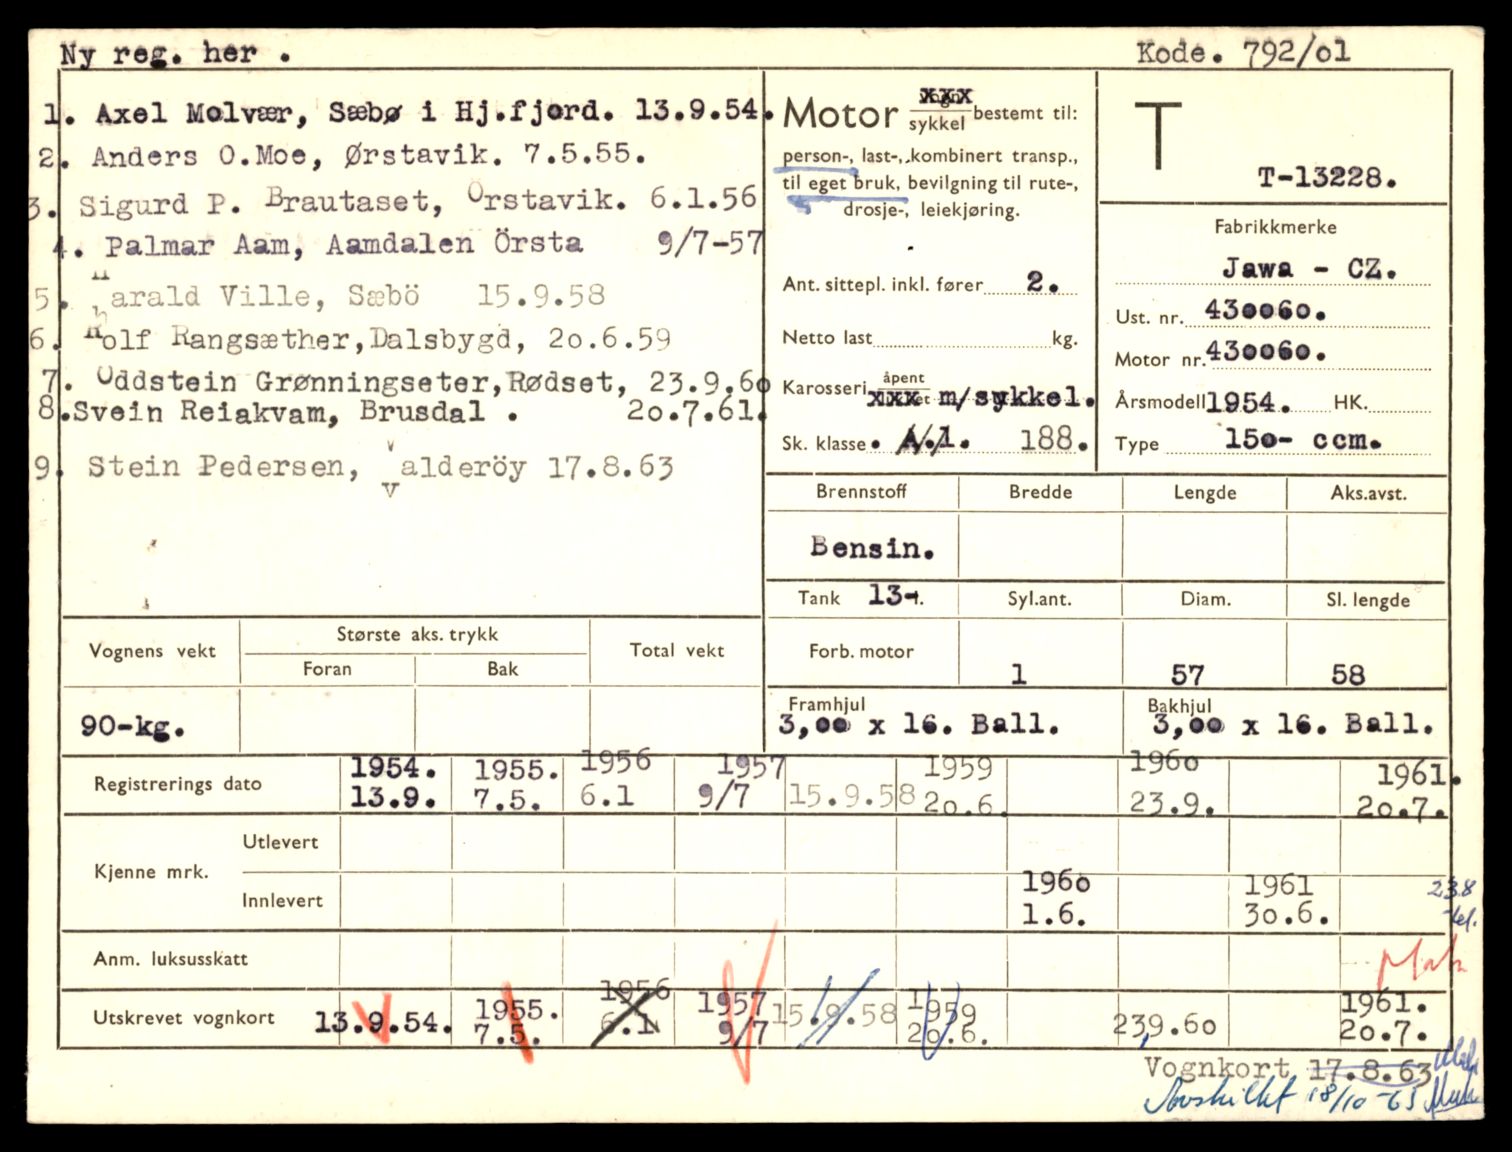 Ny reg. her .
Kode. 792/01
1. Axel Molvær, Sæbø i Hj.fjord. 13.9.54.
2. Anders O.Moe, Ørstavik. 7.5.55.
3. Sigurd P. Brautaset, Orstavik. 6.1.56
4. Palmar Aam, Aamdalen Örsta 9/7-57
5. Harald Ville, Sæbö 15.9.58
6. Rolf Rangsæther, Dalsbygd, 20.6.59
7. Oddstein Grønningseter, Rødset, 23.9.60
8. Svein Reiakvam, Brusdal . 20.7.61.
9. Stein Pedersen, Valderöy 17.8.63
Motor vogn xxx sykkel bestemt til:
person-, last-, kombinert transp.,
til eget bruk, bevilgning til rute-,
drosje-, leiekjøring.
Ant. sittepl. inkl. fører 2.
Netto last kg.
Karosseri åpent xxx m/sykkel.
Sk. klasse. A.1. 188.
T
T-13228.
Fabrikkmerke
Jawa - CZ.
Ust. nr. 430060.
Motor nr. 430060.
Årsmodell 1954. HK.
Type 150- ccm.
Brennstoff Bredde Lengde Aks.avst.
Bensin.
Tank 13-l. Syl.ant. Diam. Sl. lengde
Forb. motor 1 57 58
Vognens vekt Største aks. trykk Total vekt
Foran Bak
90-kg.
Framhjul Bakhjul
3,00 x 16. Ball. 3,00 x 16. Ball.
Registrerings dato 1954. 1955. 1956 1957 1959 1960 1961.
13.9. 7.5. 6.1 9/7 15.9.58 20.6. 23.9. 20.7.
Kjenne mrk.
Utlevert
Innlevert 1960 1961 23.8
1.6. 30.6.
Anm. luksusskatt
Utskrevet vognkort 13.9.54. 1955. 1956 1957 15.9.58 1959 23.9.60 1961.
7.5. 6.1 9/7 20.6. 20.7.
Vognkort 17.8.63
Avskiltet 18/10-63